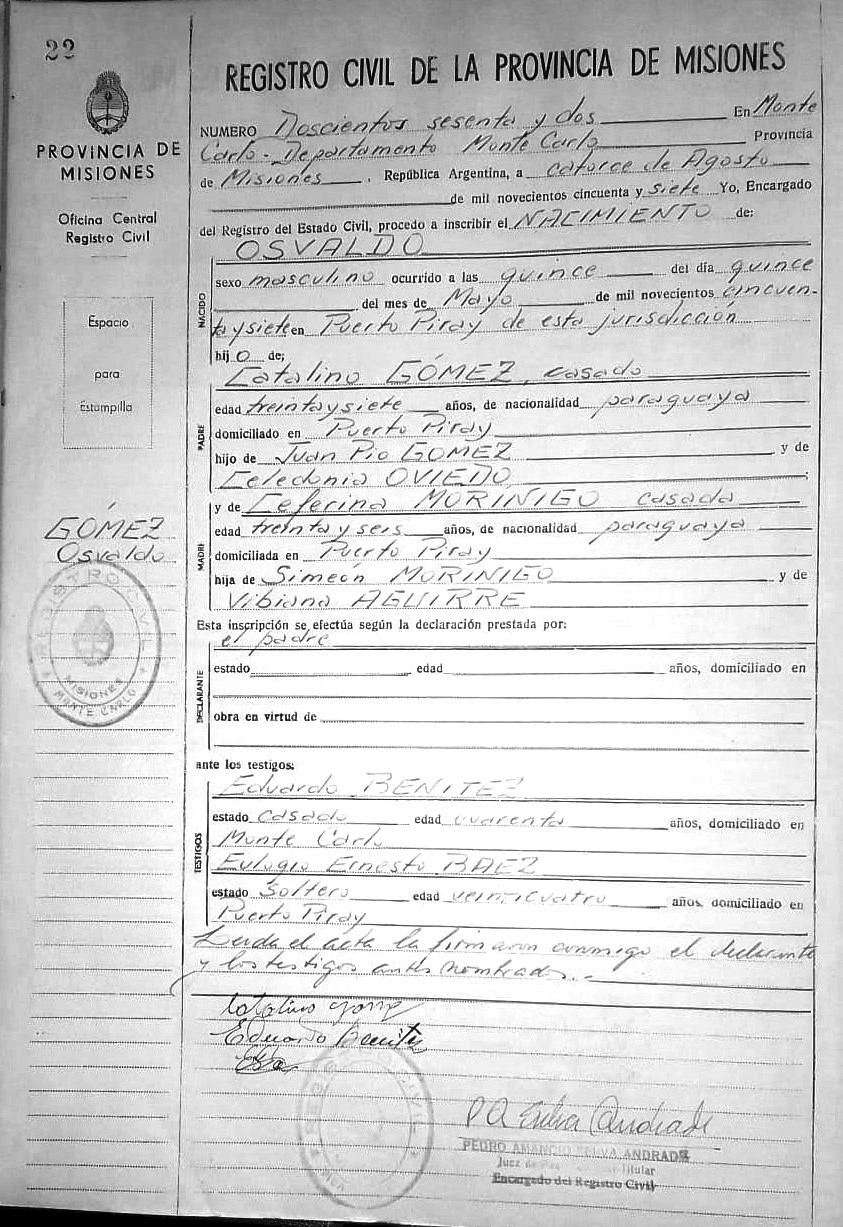 22
PROVINCIA DE
MISIONES
Oficina Central
Registro Civil
Espacio
para
Estampilla
GÓMEZ
Osvaldo
REGISTRO CIVIL
MISIONES
MONTE CARLO
REGISTRO CIVIL DE LA PROVINCIA DE MISIONES
NUMERO Doscientos sesenta y dos En Monte
Carlo - Departamento Monte Carlo Provincia
de Misiones, República Argentina, a catorce de Agosto
de mil novecientos cincuenta y siete Yo, Encargado
del Registro del Estado Civil, procedo a inscribir el NACIMIENTO de:
OSVALDO
NACIDO
sexo masculino ocurrido a las quince del día quince
del mes de Mayo de mil novecientos cincuen-
ta y siete en Puerto Piray de esta jurisdicción
hijo de;
Catalino GÓMEZ, casado
PADRE
edad treinta y siete años, de nacionalidad paraguaya
domiciliado en Puerto Piray
hijo de Juan Pio GOMEZ y de
Celedonia OVIEDO;
y de Ceferina MORINIGO casada
MADRE
edad treinta y seis años, de nacionalidad paraguaya
domiciliada en Puerto Piray
hija de Simeón MORINIGO y de
Vibiana AGUIRRE
Esta inscripción se efectúa según la declaración prestada por:
el padre
DECLARANTE
estado edad años, domiciliado en
obra en virtud de
ante los testigos:
Eduardo BENITEZ
TESTIGOS
estado casado edad cuarenta años, domiciliado en
Monte Carlo
Eulogio Ernesto BAEZ
estado soltero edad veinticuatro años, domiciliado en
Puerto Piray
Leída el acta la firmaron conmigo el declarante
y los testigos antes nombrados.-
Catalino Gomez
Eduardo Benitez
P A Silva Andrade
PEDRO AMANCIO SELVA ANDRADE
Juez de Paz Titular
Encargado del Registro Civil